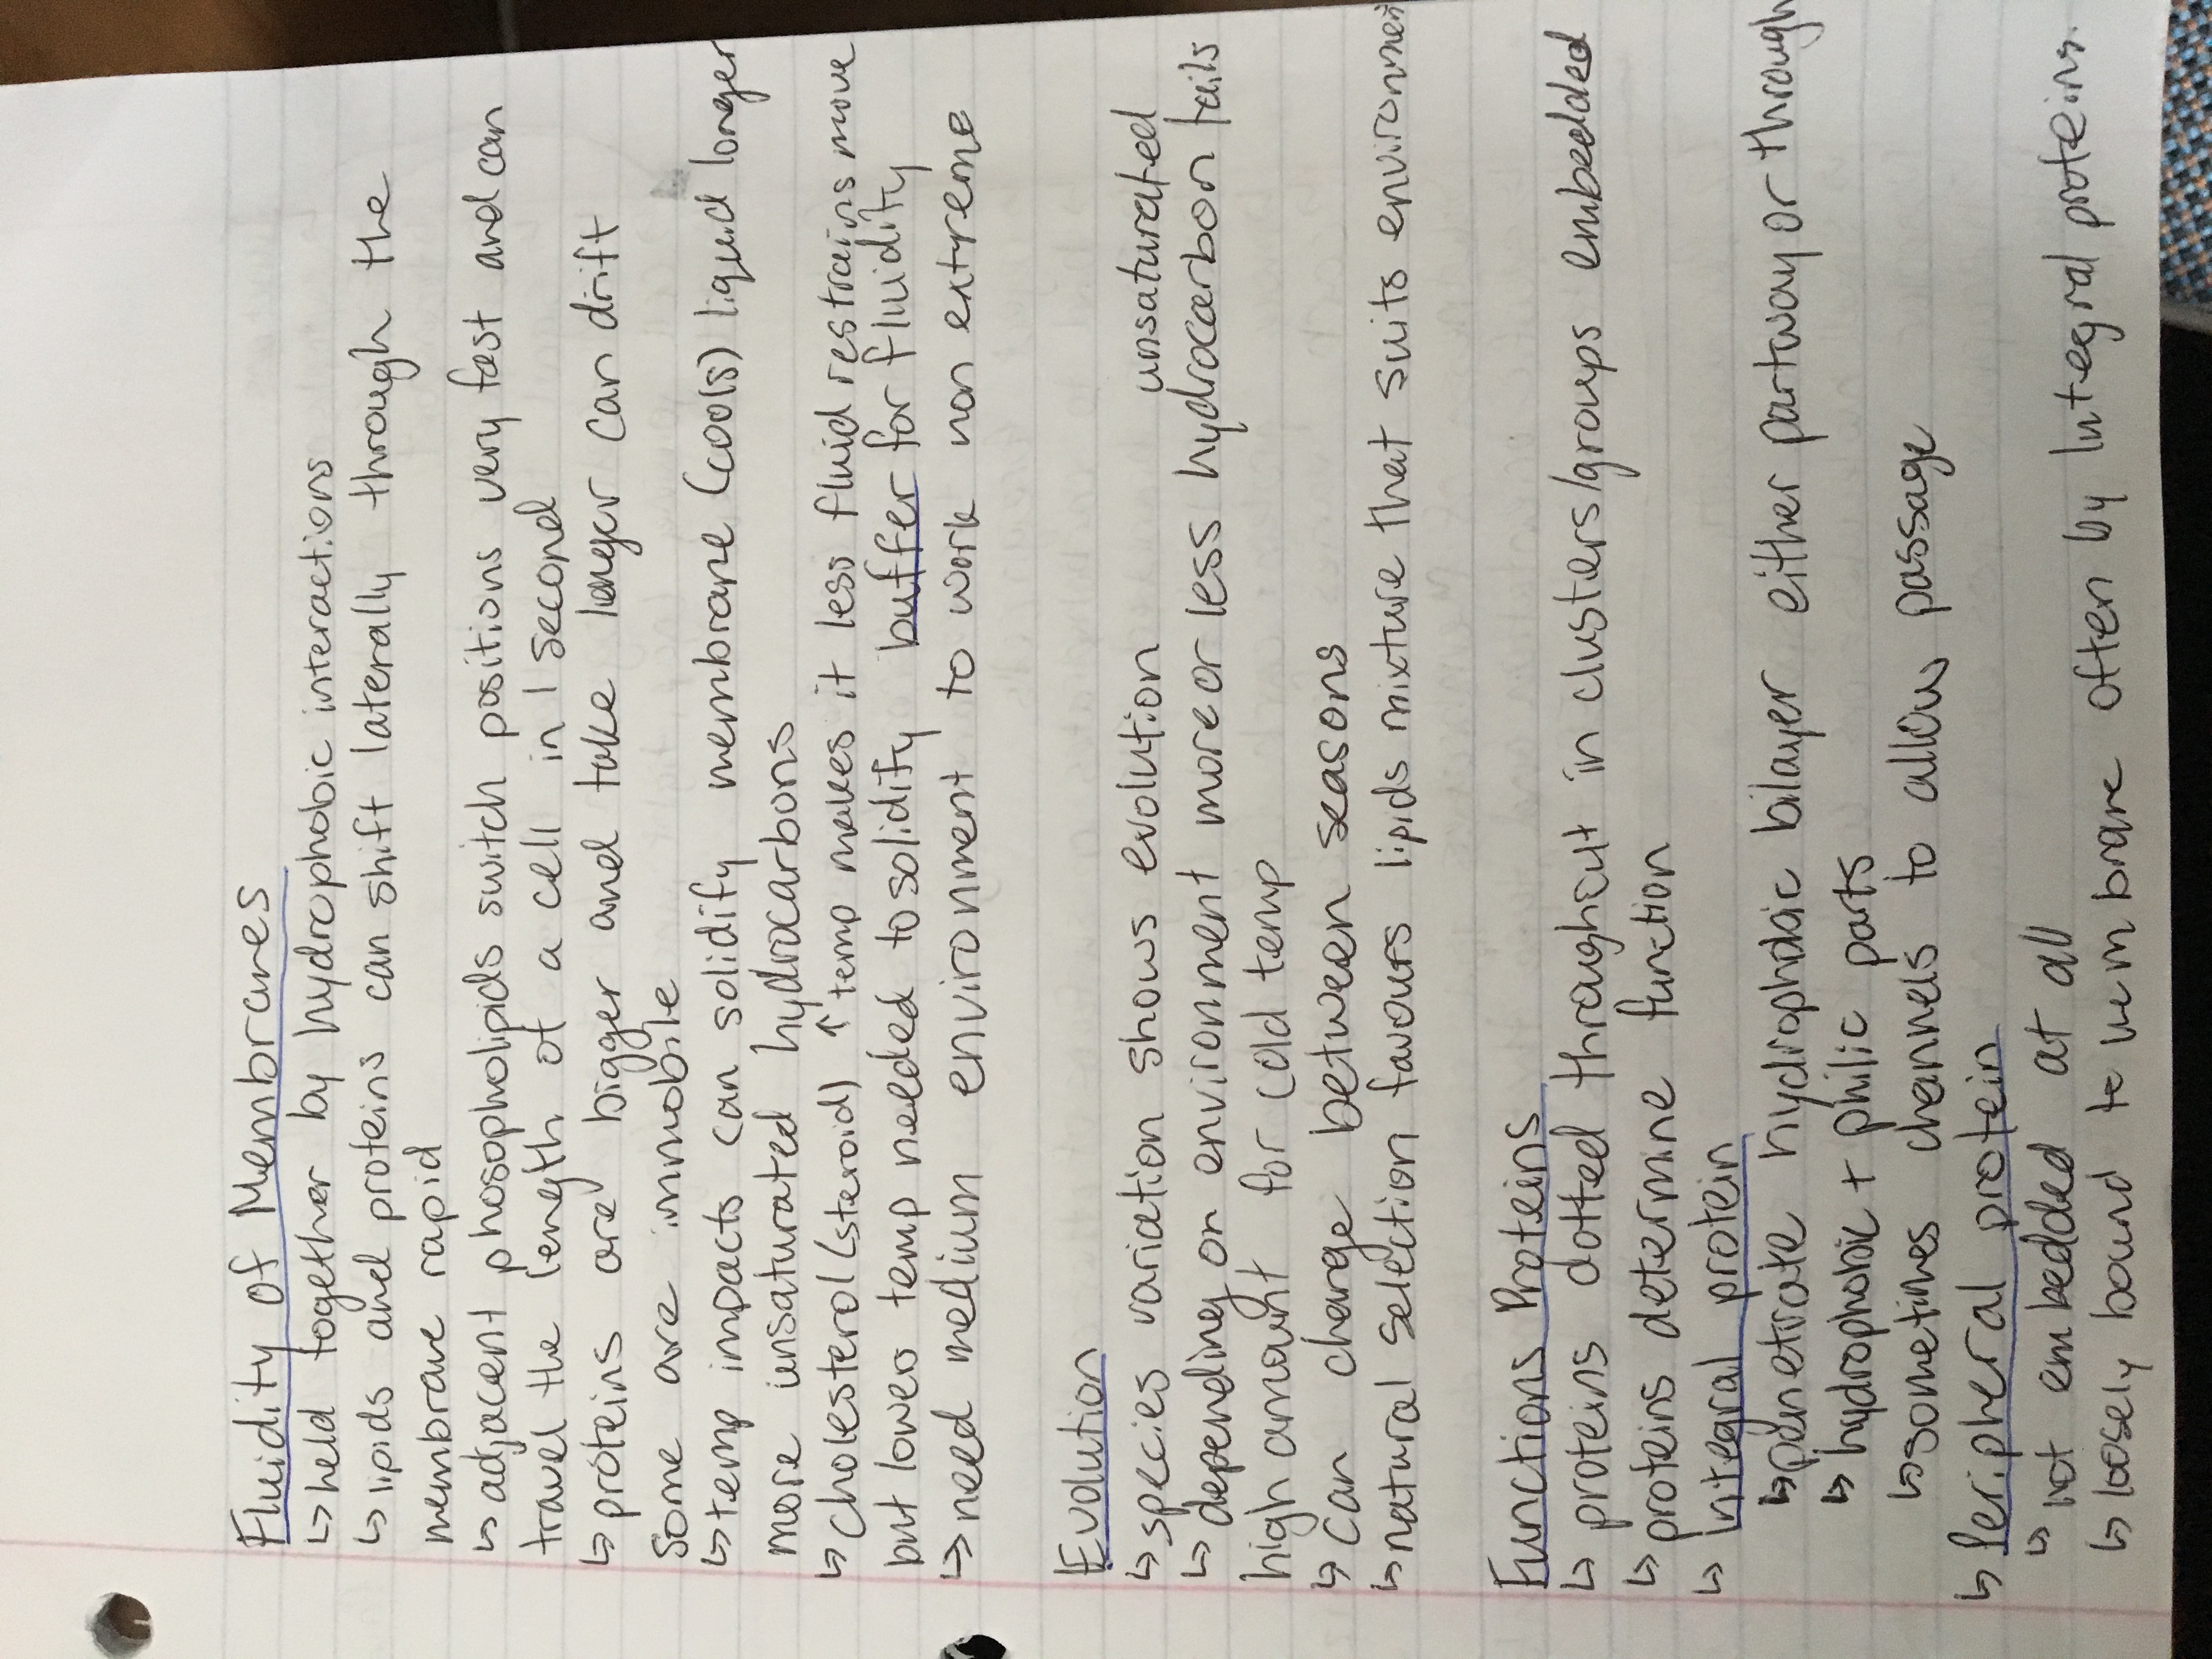 Fluidity of Membranes
↳ held together by hydrophobic interactions
↳ lipids and proteins can shift laterally through the
membrane rapid
↳ adjacent phosopholipids switch positions very fast and can
travel the length of a cell in 1 second
↳ proteins are bigger and take longer can drift
some are immobile
↳ temp impacts can solidify membrane (cools) liquid longer
more unsaturated hydrocarbons
↳ Cholesterol (steroid) ↑ temp makes it less fluid restrains move
but lowers temp needed to solidify buffer for fluidity
↳ need medium environment to work non extreme
Evolution
↳ species variation shows evolution
unsaturated
↳ depending on environment more or less hydrocarbon tails
high amount for cold temp
↳ Can change between seasons
↳ natural selection favours lipids mixture that suits environment
Functions Proteins
↳ proteins dotted throughout in clusters/groups embedded
↳ proteins determine function
↳ Integral protein
↳ penetrate hydrophobic bilayer either partway or through
↳ hydrophobic + philic parts
↳ sometimes channels to allow passage
↳ Peripheral protein
↳ not embedded at all
↳ loosely bound to membrane often by Integral proteins.